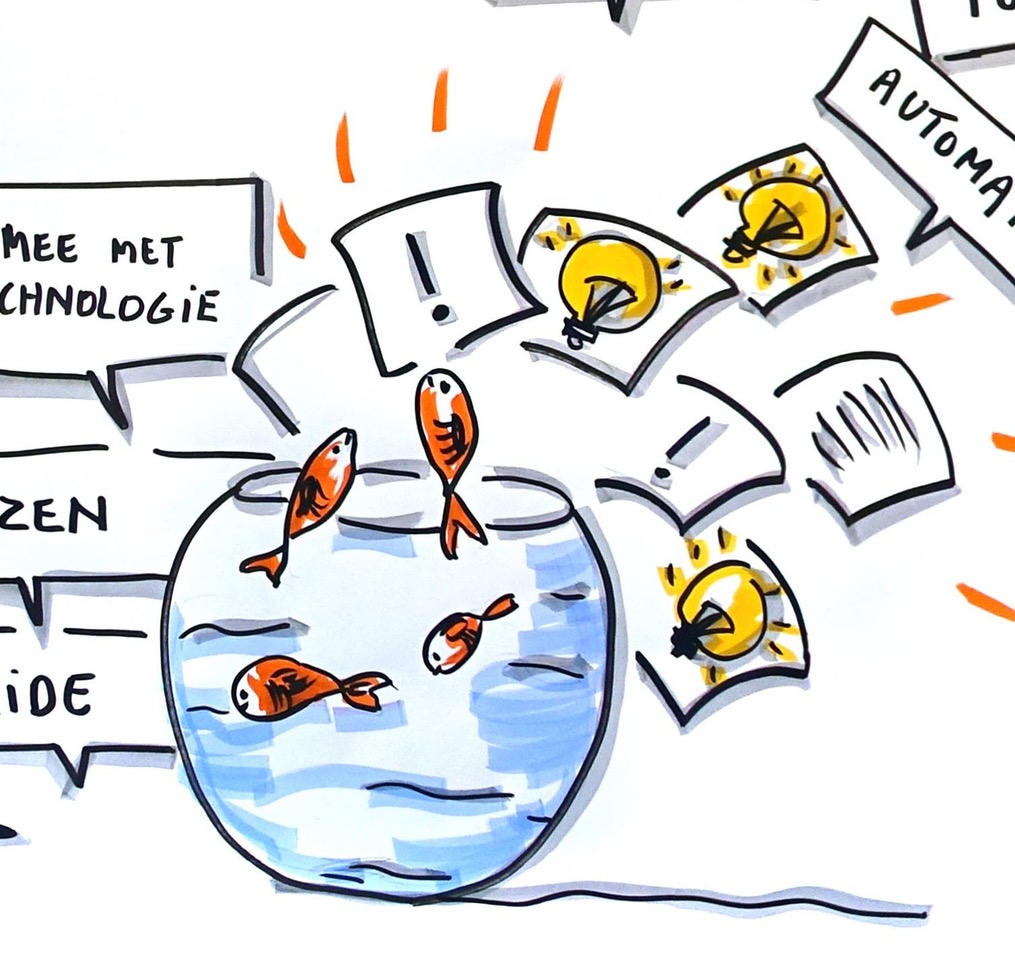 AUTOMA
MEE MET
CHNOLOGiE
!
!
ZEN
iDE